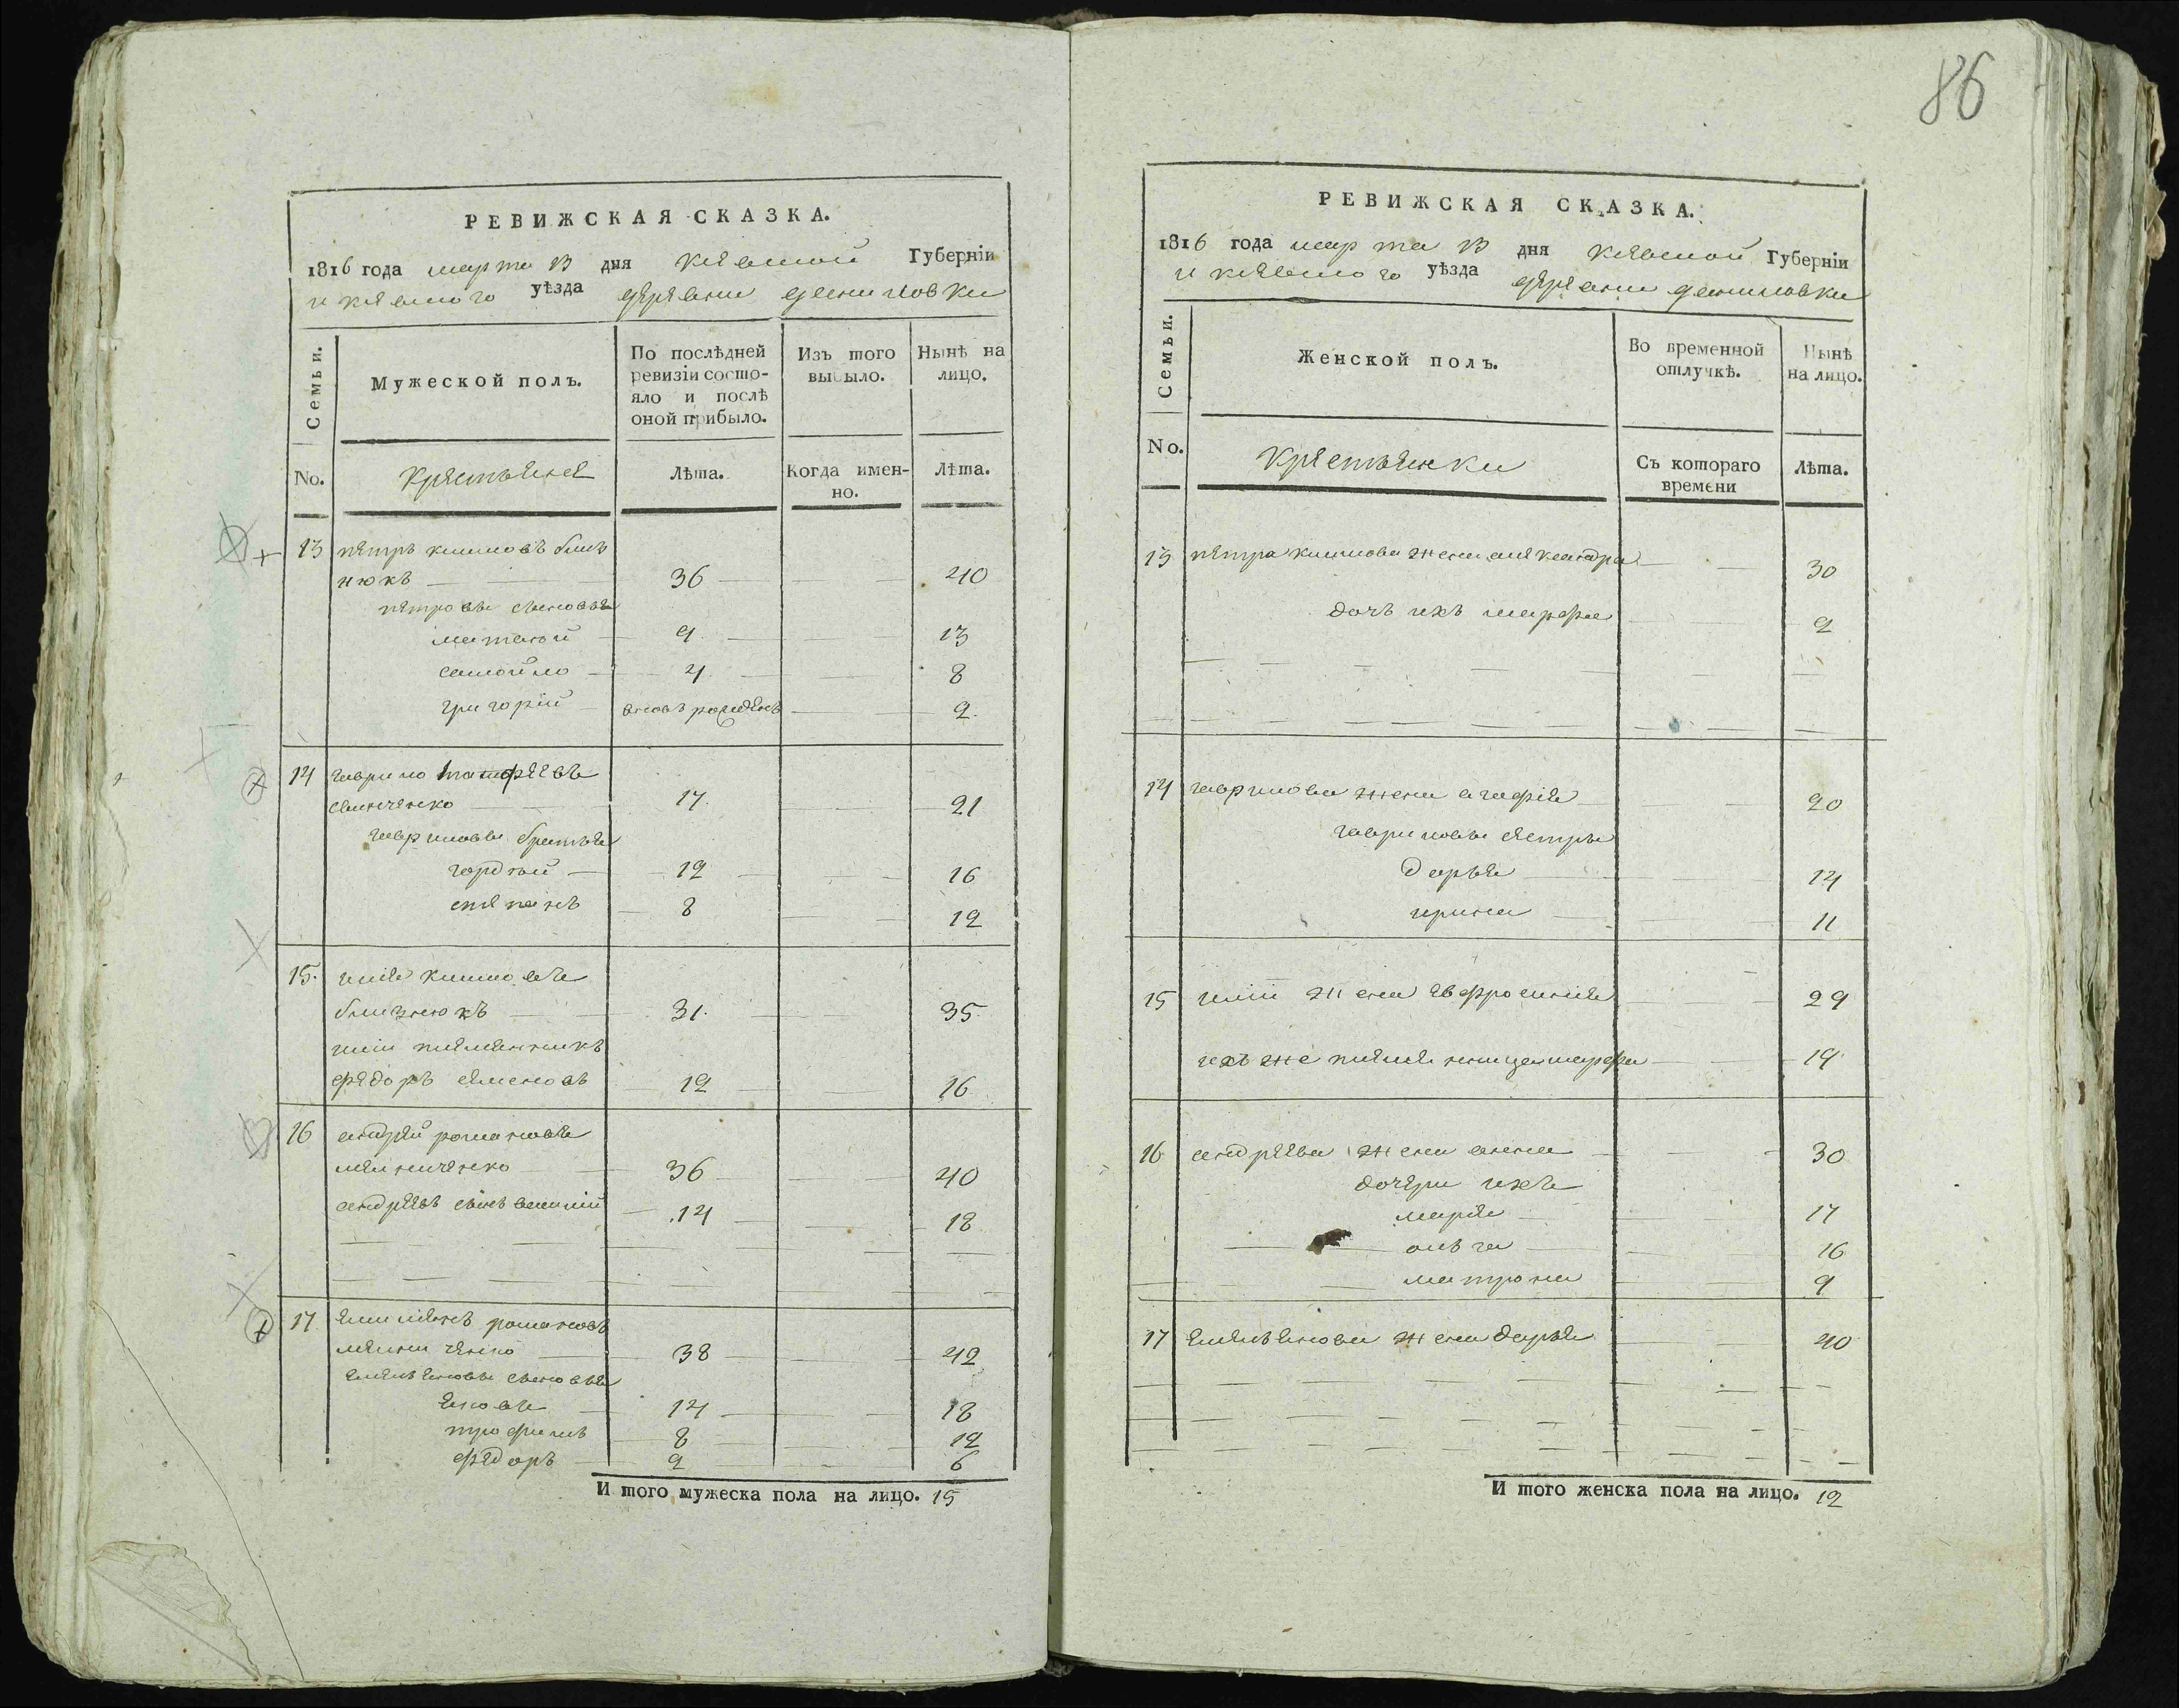 86
РЕВИЖСКАЯ СКАЗКА.
1816 года марта 13 дня киевской Губерніи
и киевского уѣзда деревни
Семьи.
Мужеской полъ.
По послѣдней ревизіи состояло и послѣ оной прибыло.
Изъ того выбыло.
Нынѣ на лицо.
No.
крестьяне
Лѣта.
Когда именно.
Лѣта.
13 петръ климовъ близ
нюкъ — 36 — 40
петровы сыновья
матвой — 9 — 13
самойло — 4 — 8
григорій — вновь рожденъ — 2
14 гаврило
семченко — 17 — 21
гавриловы братья
гордѣй — 12 — 16
степанъ — 8 — 12
15 илія климовъ
близнюкъ — 31 — 35
иліи племянникъ
федоръ семеновъ — 12 — 16
16 андрей романовъ
мельниченко — 36 — 40
андреевъ сынъ василій — 14 — 18
17 емилянъ романовъ
мельниченко — 38 — 42
емельяновы сыновья
яковъ — 14 — 18
трофимъ — 8 — 12
федоръ — 2 — 6
И того мужеска пола на лицо. 15
РЕВИЖСКАЯ СКАЗКА.
1816 года марта 13 дня киевской Губерніи
и киевского уѣзда деревни
Семьи.
Женской полъ.
Во временной отлучкѣ.
Нынѣ на лицо.
No.
крестьянки
Съ котораго времени
Лѣта.
13 петра климова жена александра — 30
дочь ихъ марфа — 2
14 гаврилова жена агафія — 20
гавриловы сестры
дарья — 14
ирина — 11
15 иліи жена евфросинія — 29
ихъ же племянница марфа — 19
16 андреева жена анна — 30
дочери ихъ
марія — 17
ольга — 16
матрона — 9
17 емельянова жена дарья — 40
И того женска пола на лицо. 12